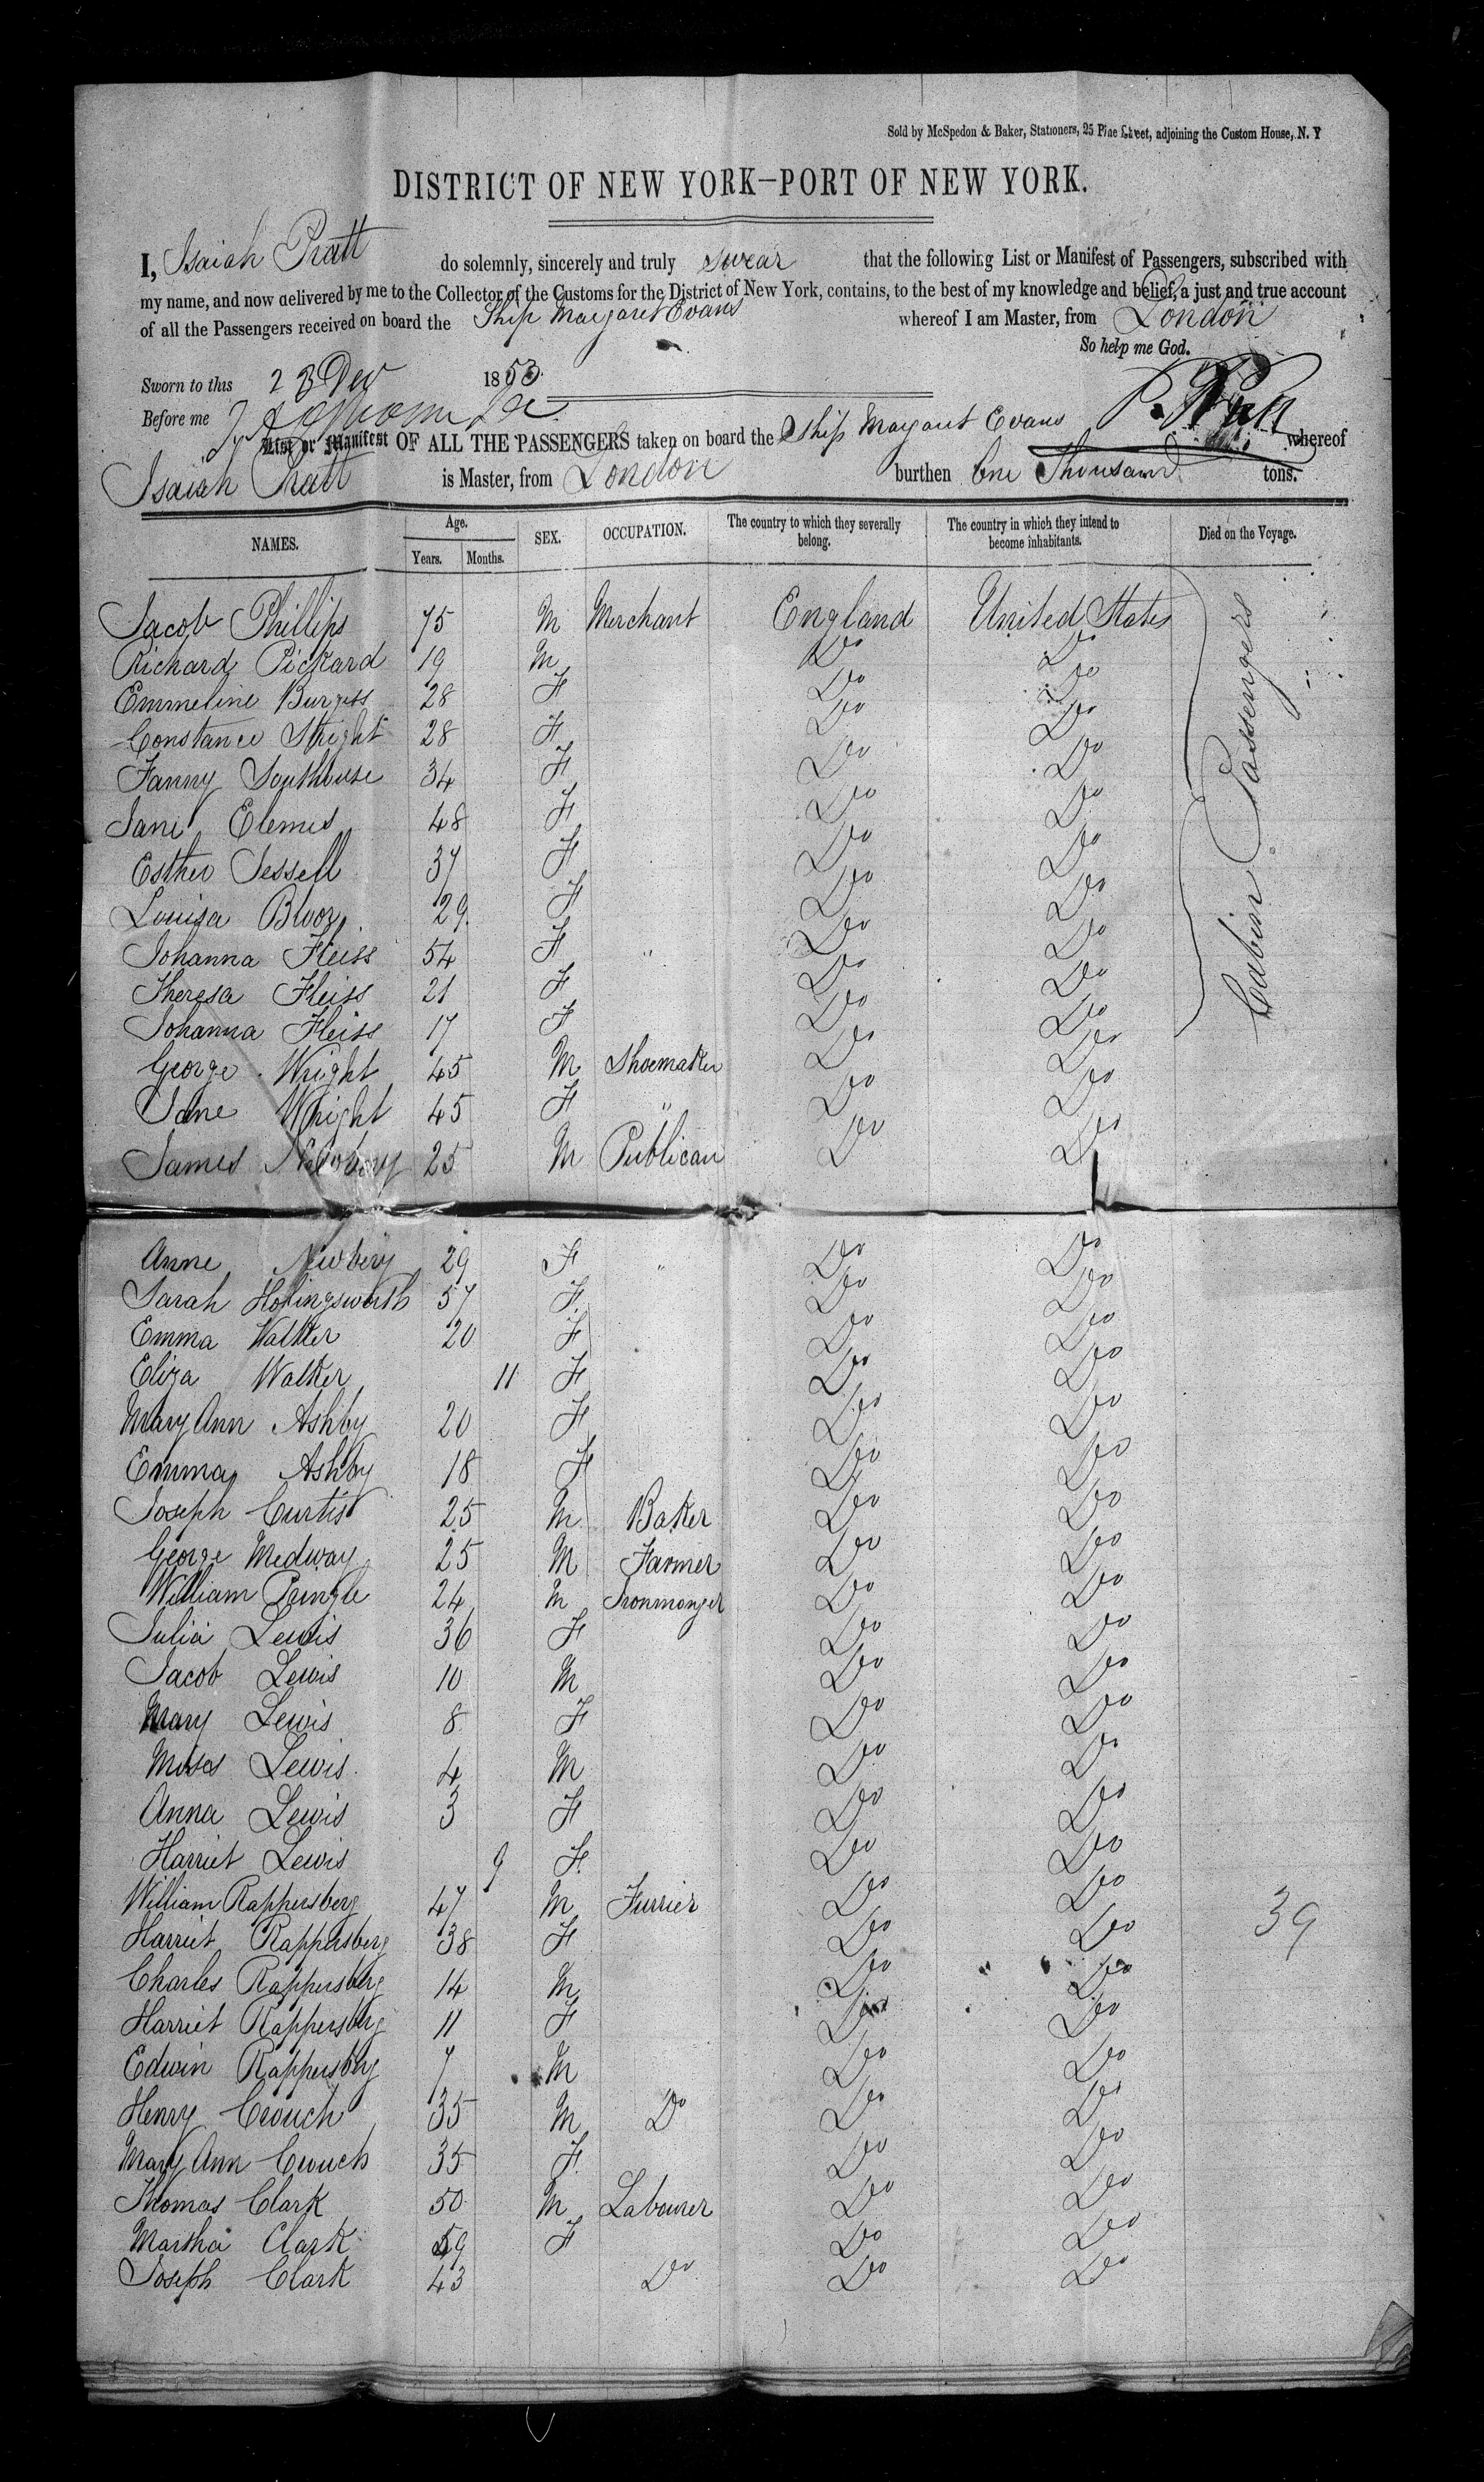 Sold by McSpedon & Baker, Stationers, 25 Pine Street, adjoining the Custom House, N. Y
DISTRICT OF NEW YORK—PORT OF NEW YORK.
I, Isaiah Pratt do solemnly, sincerely and truly swear that the following List or Manifest of Passengers, subscribed with
my name, and now delivered by me to the Collector of the Customs for the District of New York, contains, to the best of my knowledge and belief, a just and true account
of all the Passengers received on board the Ship Margaret Evans whereof I am Master, from London
So help me God.
Sworn to this 23 Dec 1853
Before me
List or Manifest OF ALL THE PASSENGERS taken on board the Ship Margaret Evans whereof
Isaiah Pratt is Master, from London burthen One Thousand tons.
NAMES. Age. Years. Months. SEX. OCCUPATION. The country to which they severally belong. The country in which they intend to become inhabitants. Died on the Voyage.
Jacob Phillips 75 M Merchant England United States
Richard Pickard 19 M Do Do
Emmeline Burgess 28 F Do Do
Constance Stright 28 F Do Do
Fanny Southouse 34 F Do Do
Jane Elemes 48 F Do Do
Esther Jessell 37 F Do Do
Louisa 29 F Do Do
Johanna Fleiss 54 F " Do Do
Theresa Fleiss 21 F Do Do
Johanna Fleiss 17 F Do Do
Cabin Passengers
George Wright 45 M Shoemaker Do Do
Jane Wright 45 F " Do Do
James Newbery 25 M Publican Do Do
Anne Newbery 29 F " Do Do
Sarah Hollingsworth 57 F Do Do
Emma Walker 20 F Do Do
Eliza Walker 11 F Do Do
Mary Ann Ashby 20 F Do Do
Emma Ashby 18 F Do Do
Joseph Curtis 25 M Baker Do Do
George Medway 25 M Farmer Do Do
William Pringle 24 M Ironmonger Do Do
Julia Lewis 36 F Do Do
Jacob Lewis 10 M Do Do
Mary Lewis 8 F Do Do
Moses Lewis 4 M Do Do
Anna Lewis 3 F Do Do
Harriet Lewis 9 F Do Do
William Rappersberg 47 M Furrier Do Do
39
Harriet Rappersberg 38 F Do Do
Charles Rappersberg 14 M Do Do
Harriet Rappersberg 11 F Do Do
Edwin Rappersberg 7 M Do Do
Henry Crouch 35 M Do Do Do
Mary Ann Crouch 35 F Do Do
Thomas Clark 50 M Labourer Do Do
Martha Clark 59 F Do Do
Joseph Clark 43 Do Do Do